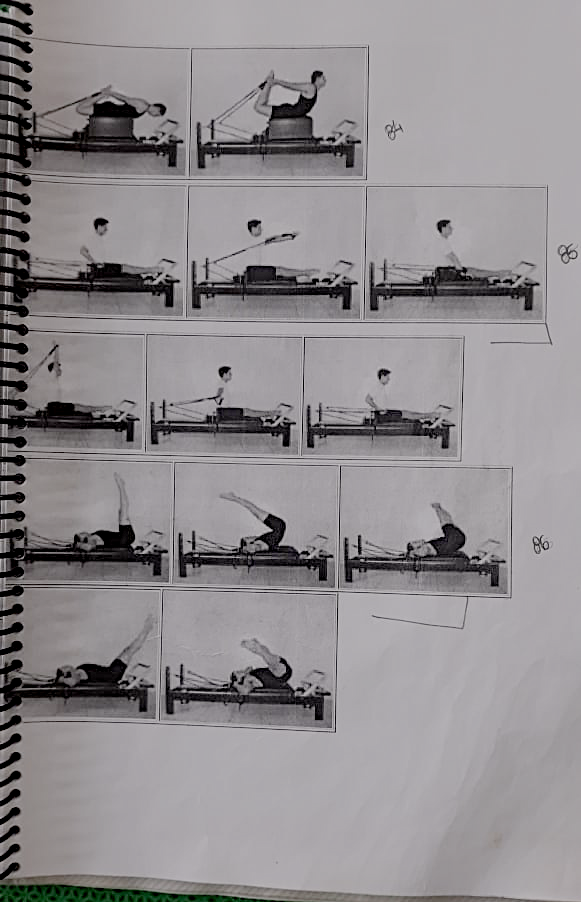 84
85
86